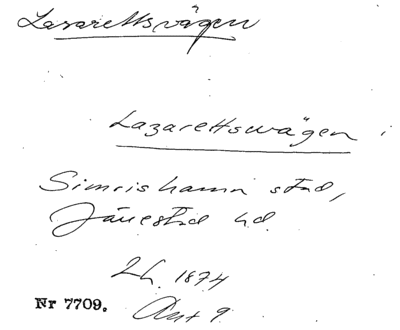 Lasarettsvägen
Lazarettswägen i
Simrishamn stad,
Järrestad hd
Lh. 1874
Akt 9
Nr 7709.